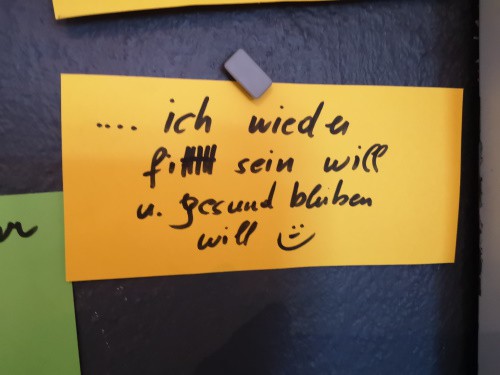 .... ich wieder
fit sein will
u. gesund bleiben
will